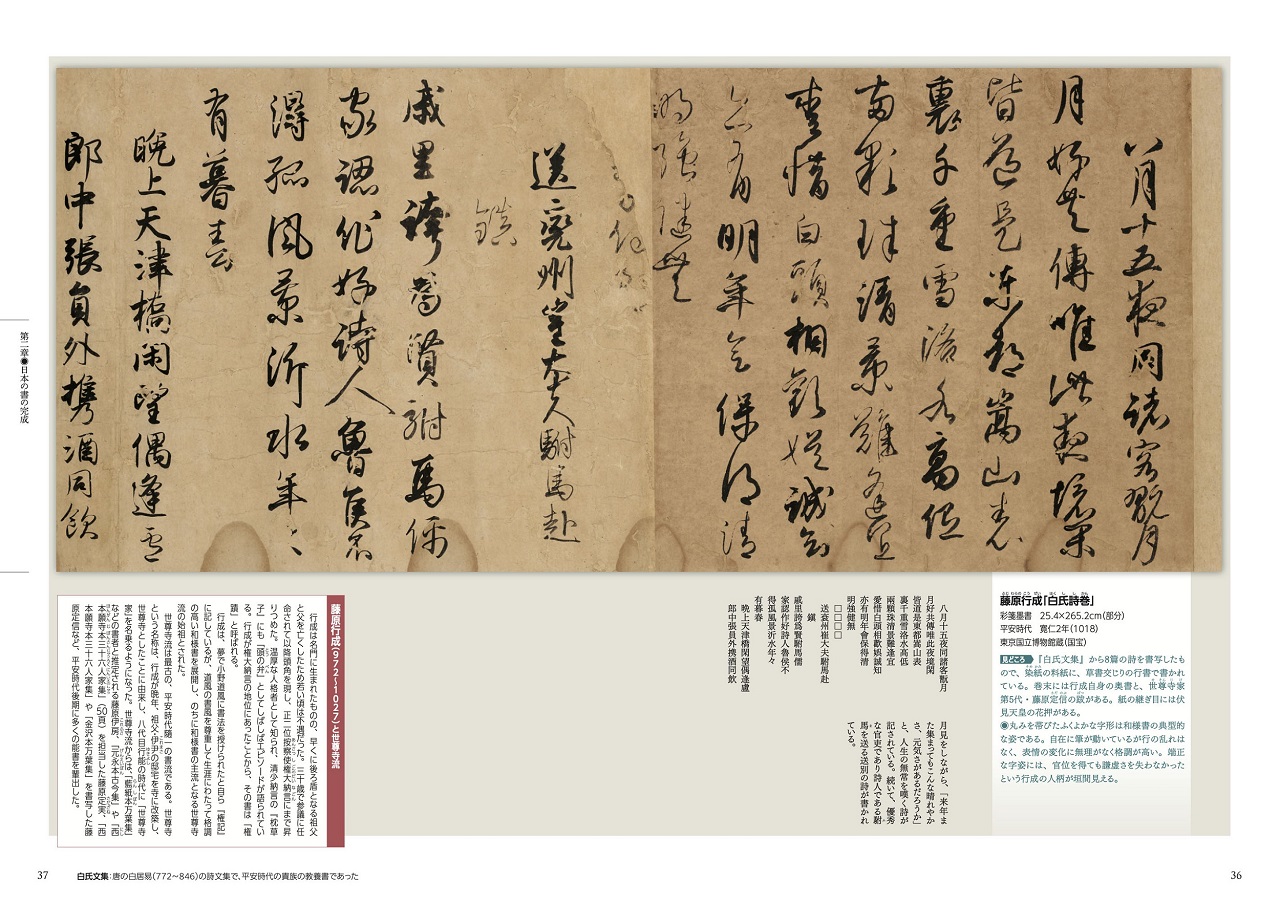 八月十五夜同諸客翫月
月好共傳唯此夜境閑
皆道是東都嵩山表
裏千重雪洛水高低
両顆珠清景難逢宜
愛惜白頭相歓娯誠知
亦有明年会保得清
明強健無
送兗州崔大夫駙馬赴
鎮
戚里誇為賢駙馬儒
家認作好詩人魯侯不
得孤風景沂水年々
有暮春
晩上天津橋閑望偶逢盧
郎中張員外携酒同飲
藤原行成「白氏詩巻」
彩箋墨書 25.4×265.2cm(部分)
平安時代 寛仁2年(1018)
東京国立博物館蔵(国宝)
見どころ 『白氏文集』から8篇の詩を書写したも
ので、染紙の料紙に、草書交じりの行書で書かれ
ている。巻末には行成自身の奥書と、世尊寺家
第5代・藤原定信の跋がある。紙の継ぎ目には伏
見天皇の花押がある。
●丸みを帯びたふくよかな字形は和様書の典型的
な姿である。自在に筆が動いているが行の乱れは
なく、表情の変化に無理がなく格調が高い。端正
な字姿には、官位を得ても謙虚さを失わなかった
という行成の人柄が垣間見える。
八月十五夜同諸客翫月
月好共傳唯此夜境閑
皆道是東都嵩山表
裏千重雪洛水高低
兩顆珠清景難逢宜
愛惜白頭相歡娯誠知
亦有明年會保得清
明強健無
□□□□
送兗州崔大夫駙馬赴
鎭
戚里誇為賢駙馬儒
家認作好詩人魯侯不
得孤風景沂水年々
有暮春
晩上天津橋閑望偶逢盧
郎中張員外携酒同飲
月見をしながら、「来年ま
た集まってもこんな晴れやか
さ、元気さがあるだろうか」
と、人生の無常を嘆く詩が
記されている。続いて、優秀
な官吏であり詩人である駙
馬を送る送別の詩が書かれ
ている。
藤原行成(972〜1027)と世尊寺流
行成は名門に生まれたものの、早くに後ろ盾となる祖父
と父を亡くしたため若い頃は不遇だった。三十歳で参議に任
命されて以降頭角を現し、正二位按察使権大納言にまで昇
りつめた。温厚な人格者として知られ、清少納言の『枕草
子』にも「頭の弁」としてしばしばエピソードが語られてい
る。行成が権大納言の地位にあったことから、その書は「権
蹟」と呼ばれる。
行成は、夢で小野道風に書法を授けられたと自ら『権記』
に記しているが、道風の書風を尊重して生涯にわたって格調
の高い和様書を展開し、のちに和様書の主流となる世尊寺
流の始祖とされた。
世尊寺流は最古の、平安時代随一の書流である。世尊寺
という名称は、行成が晩年、祖父・伊尹の邸宅を寺に改築し、
世尊寺としたことに由来し、八代目行能の時代に「世尊寺
家」を名乗るようになった。世尊寺流からは、「藍紙本万葉集」
などの書者と推定される藤原伊房、「元永本古今集」や「西
本願寺本三十六人家集」(50頁)を担当した藤原定実、「西
本願寺本三十六人家集」や「金沢本万葉集」を書写した藤
原定信など、平安時代後期に多くの能書を輩出した。
第二章●日本の書の完成
37
白氏文集:唐の白居易(772〜846)の詩文集で、平安時代の貴族の教養書であった
36